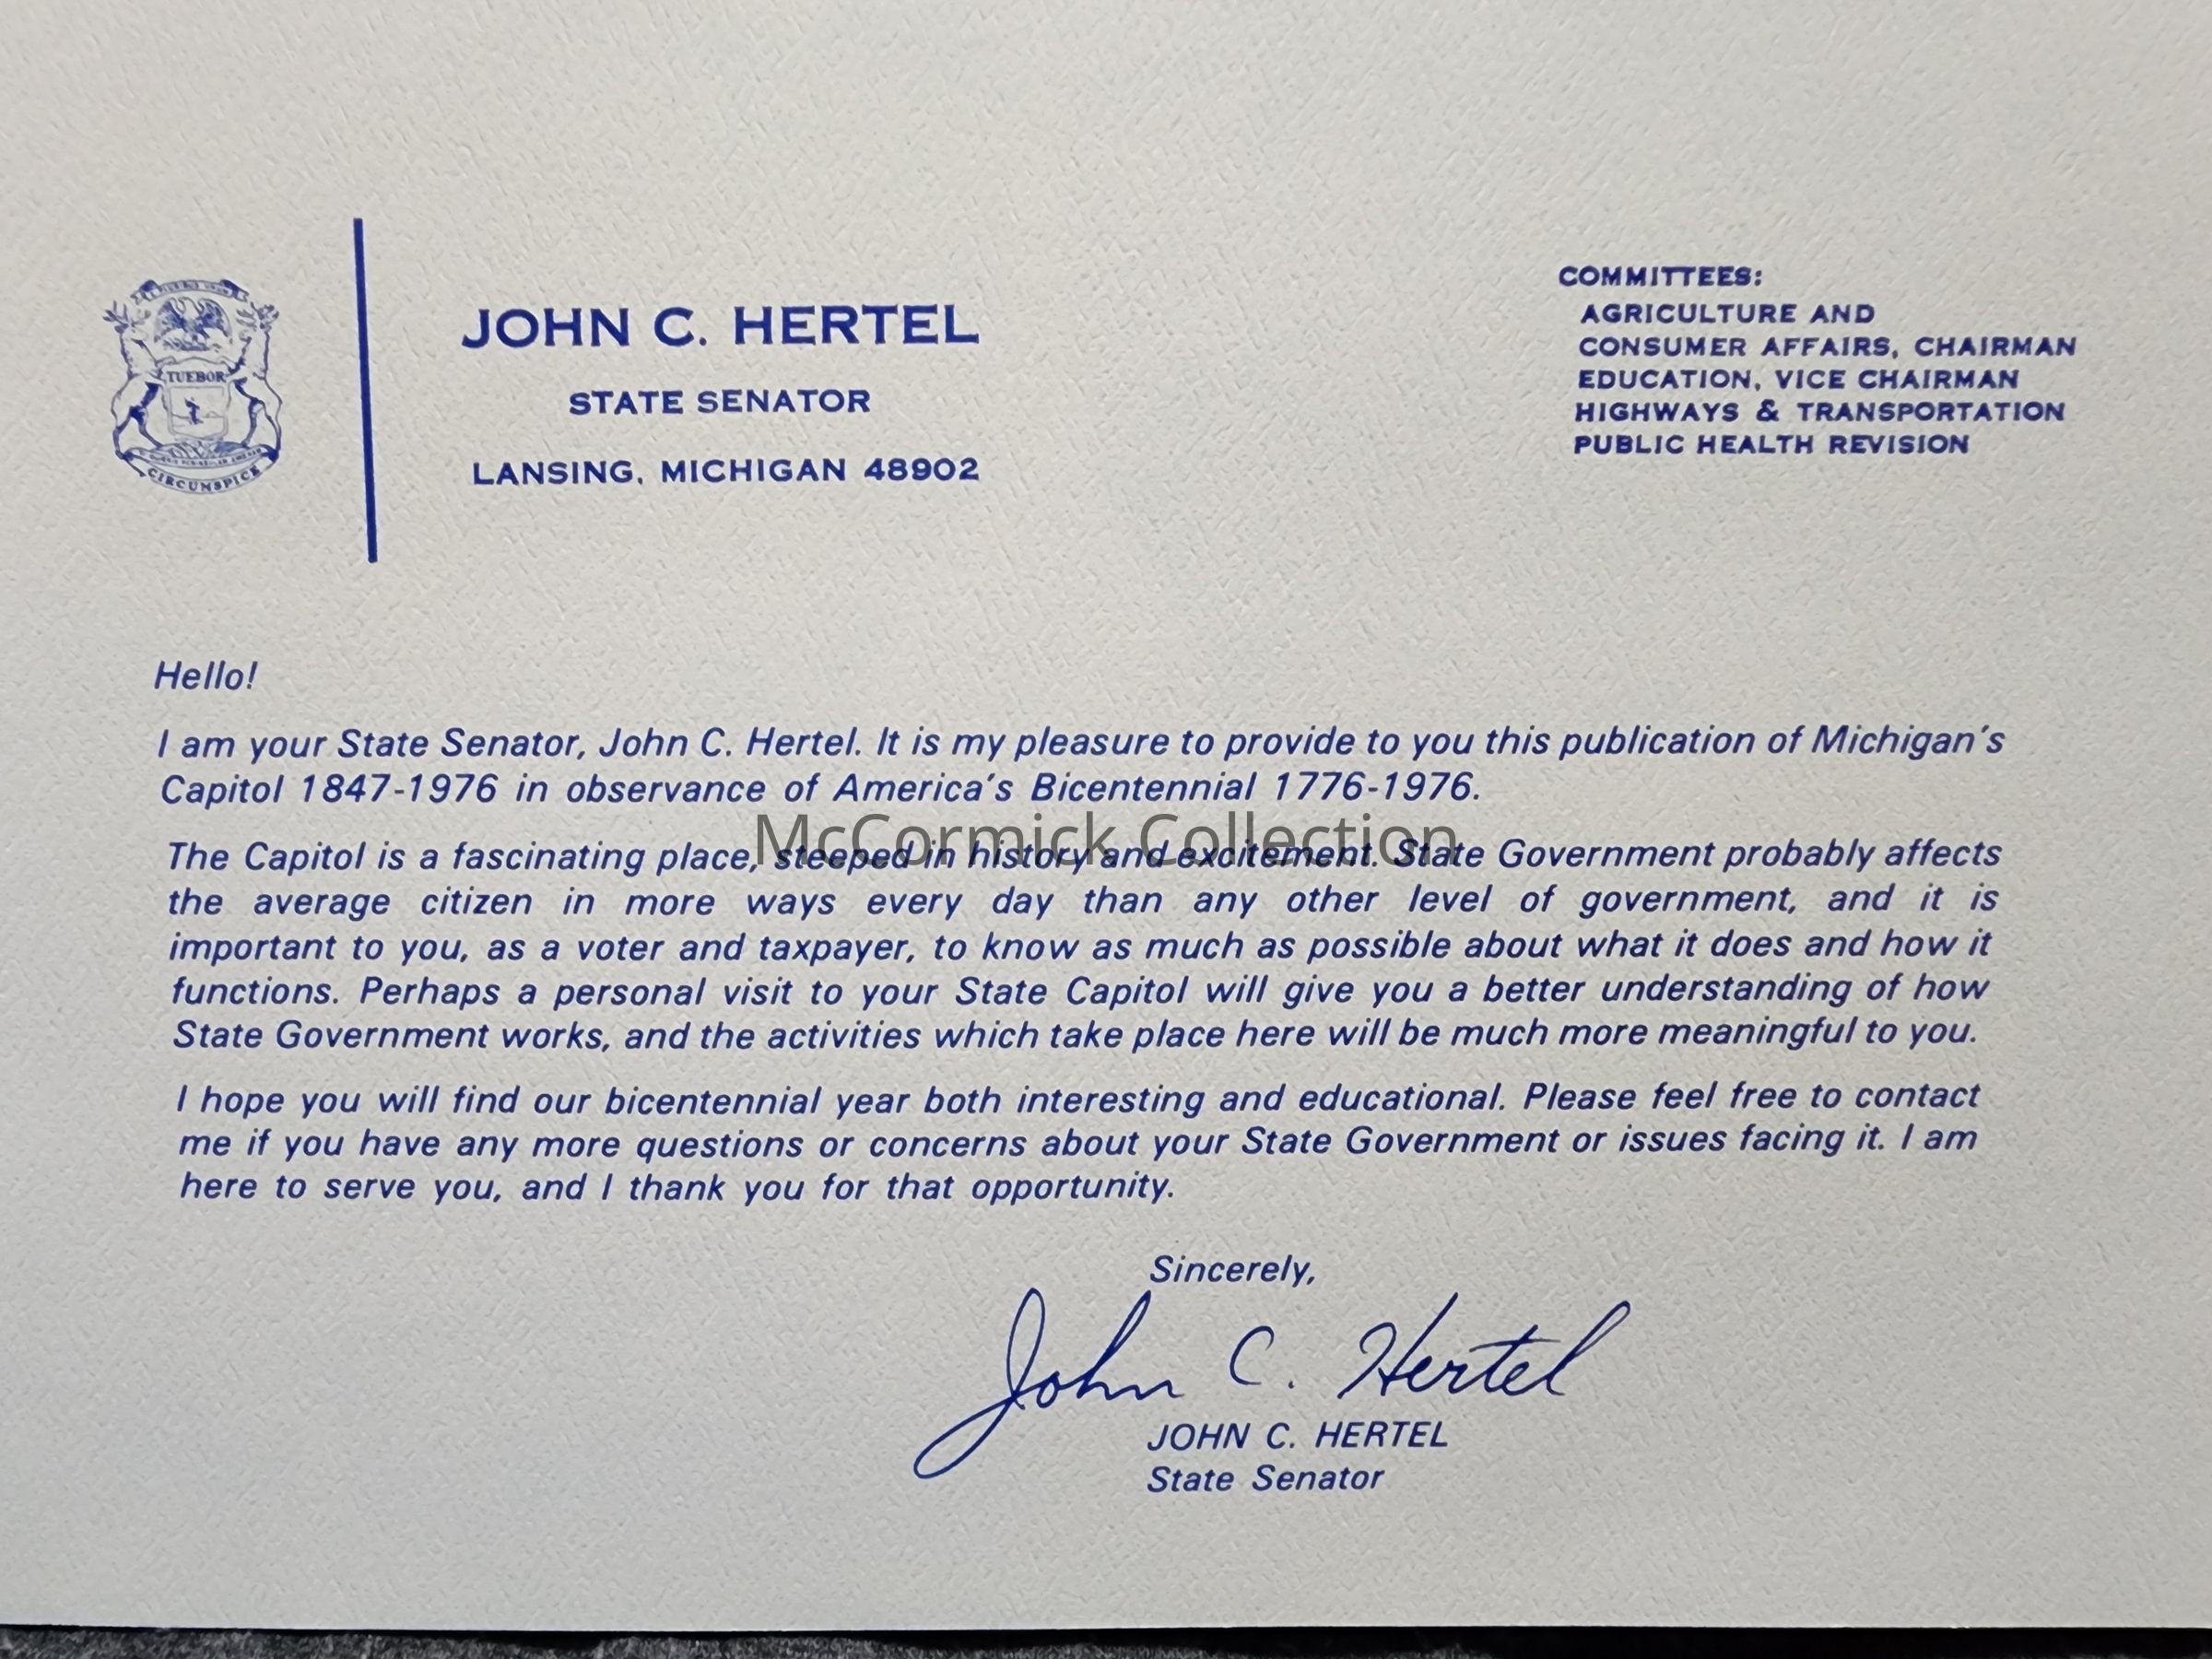 TUEBOR
CIRCUMSPICE
JOHN C. HERTEL
STATE SENATOR
LANSING, MICHIGAN 48902
COMMITTEES:
AGRICULTURE AND
CONSUMER AFFAIRS, CHAIRMAN
EDUCATION, VICE CHAIRMAN
HIGHWAYS & TRANSPORTATION
PUBLIC HEALTH REVISION
Hello!
I am your State Senator, John C. Hertel. It is my pleasure to provide to you this publication of Michigan's
Capitol 1847-1976 in observance of America's Bicentennial 1776-1976.
McCormick Collection
The Capitol is a fascinating place, steeped in history and excitement. State Government probably affects
the average citizen in more ways every day than any other level of government, and it is
important to you, as a voter and taxpayer, to know as much as possible about what it does and how it
functions. Perhaps a personal visit to your State Capitol will give you a better understanding of how
State Government works, and the activities which take place here will be much more meaningful to you.
I hope you will find our bicentennial year both interesting and educational. Please feel free to contact
me if you have any more questions or concerns about your State Government or issues facing it. I am
here to serve you, and I thank you for that opportunity.
Sincerely,
John C. Hertel
JOHN C. HERTEL
State Senator